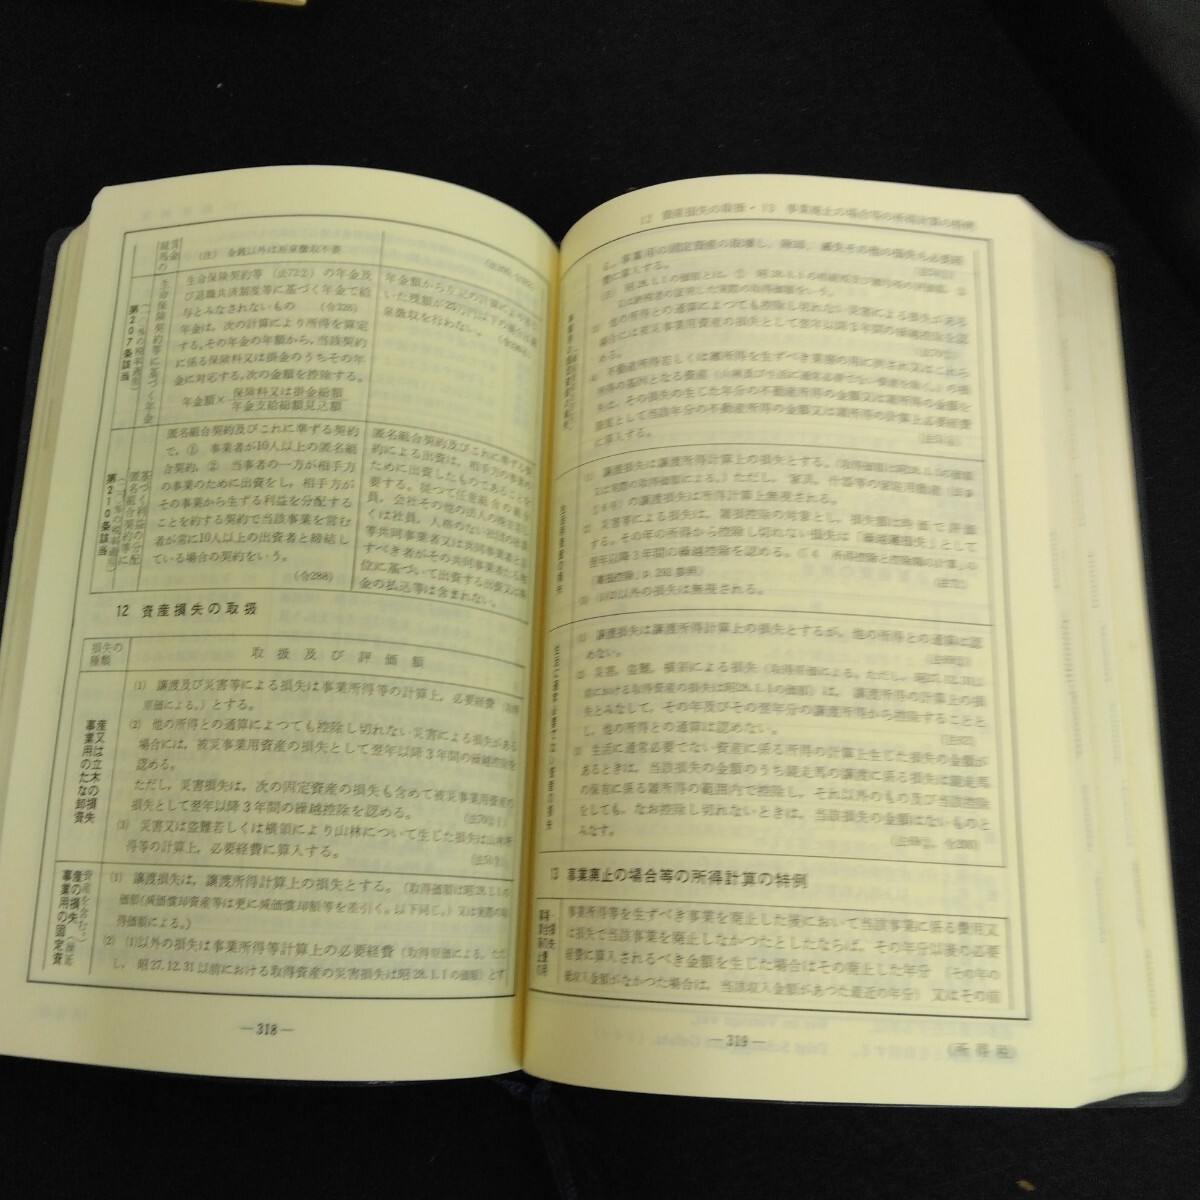 賞金
競馬の
(注) 金銭以外は源泉徴収不要
第207条該当
生命保険契約等に基づく年金
生命保険契約等(法72②)の年金及
び退職共済制度等に基づく年金で給
与とみなされないもの (令326)
年金は、次の計算により所得を算定
する。その年金の年額から、当該契約
に係る保険料又は掛金のうちその年
金に対応する、次の金額を控除する。
年金額×保険料又は掛金総額/年金支給総額見込額
年金額から左記の計算により控除し
いた残額が25万円以下の場合は源
泉徴収を行わない。
第210条該当
匿名組合契約等に
基づく利益の分配
匿名組合契約及びこれに準ずる契約
で、① 事業者が10人以上の匿名組
合契約、② 当事者の一方が相手方
の事業のために出資をし、相手方が
その事業から生ずる利益を分配する
ことを約する契約で当該事業を営む
者が常に10人以上の出資者と締結し
ている場合の契約をいう。
(令288)
匿名組合契約及びこれに準ずる契
約による出資は、相手方の事業の
ために出資したものであることを
要する。従つて任意組合の組合
員、会社その他の法人の株主若し
くは社員、人格のない社団の社員
等共同事業者又は共同事業者と
すべき者がその共同事業者たる地
位に基づいて出資する出資又は
金の払込等は含まれない。
12 資産損失の取扱
損失の
種類
取扱及び評価額
事業用のたな卸資
産又は立木の損失
(1) 譲渡及び災害等による損失は事業所得等の計算上、必要経費(取得
原価による。)とする。
(2) 他の所得との通算によつても控除し切れない災害による損失がある
場合には、被災事業用資産の損失として翌年以降3年間の繰越控除を
認める。
ただし、災害損失は、次の固定資産の損失も含めて被災事業用資産の
損失として翌年以降3年間の繰越控除を認める。
(3) 災害又は盗難若しくは横領により山林について生じた損失は山林所
得等の計算上、必要経費に算入する。
事業用の固定資
産の損失
(1) 譲渡損失は、譲渡所得計算上の損失とする。(取得価額は昭28.1.1の
価額(減価償却資産等は更に減価償却額等を差引く。以下同じ。)又は実際の取
得価額による。)
(2) (1)以外の損失は事業所得等計算上の必要経費(取得価による。ただ
し、昭27.12.31以前における取得資産の災害損失は昭28.1.1の価額)とす
—318—
12 資産損失の取扱・13 事業廃止の場合等の所得計算の特例
る。事業用の固定資産の取壊し、除却、滅失その他の損失も必要経
費に算入する。
他の所得との通算によつても控除し切れない災害による損失がある
場合には被災事業用資産の損失として翌年以降3年間の繰越控除を認
める。
不動産所得若しくは雑所得を生ずべき業務の用に供され又はこれら
の所得の基因となる資産(山林及び生活に通常必要でない資産を除く。)の損
失は、その損失の生じた年分の不動産所得の金額又は雑所得の金額を
限度として当該年分の不動産所得の金額又は雑所得の計算上必要経費
に算入する。
(1) 譲渡損失は譲渡所得計算上の損失とする。(取得価額は昭28.1.1の価額
又は実際の取得価額による。)ただし、家具、什器等の家庭用動産
の譲渡損失は所得計算上無視される。
(2) 災害等による損失は、雑損控除の対象とし、損失額は時価で評価
する。その年の所得から控除し切れない損失は「繰越雑損失」として
翌年以降3年間の繰越控除を認める。(「4 所得控除と控除額の計算」の
「雑損控除」p.292参照) (法72)
(3) (1)(2)以外の損失は無視される。
生活に通常必要でない資産の損失
(1) 譲渡損失は譲渡所得計算上の損失とするが、他の所得との通算は認
めない。
(2) 災害、盗難、横領による損失(取得原価による。ただし、昭27.12.31以
前における取得資産の損失は昭28.1.1の価額)は、譲渡所得の計算上の損
失とみなして、その年及びその翌年分の譲渡所得から控除することと
し、他の所得との通算は認めない。 (法62)
(3) 生活に通常必要でない資産に係る所得の計算上生じた損失の金額が
あるときは、当該損失の金額のうち競走馬の譲渡に係る損失は競走馬
の保有に係る雑所得の範囲内で控除し、それ以外のもの及び当該控除
をしても、なお控除し切れないときは、当該損失の金額はないものと
みなす。
13 事業廃止の場合等の所得計算の特例
事業所得等を生ずべき事業を廃止した後において当該事業に係る費用又
は損失で当該事業を廃止しなかつたとしたならば、その年分以後の必要
経費に算入されるべき金額を生じた場合はその廃止した年分 (その年の
総収入金額がなかつた場合は、当該収入金額があつた最近の年分) 又はその前
—319—
(所得税)